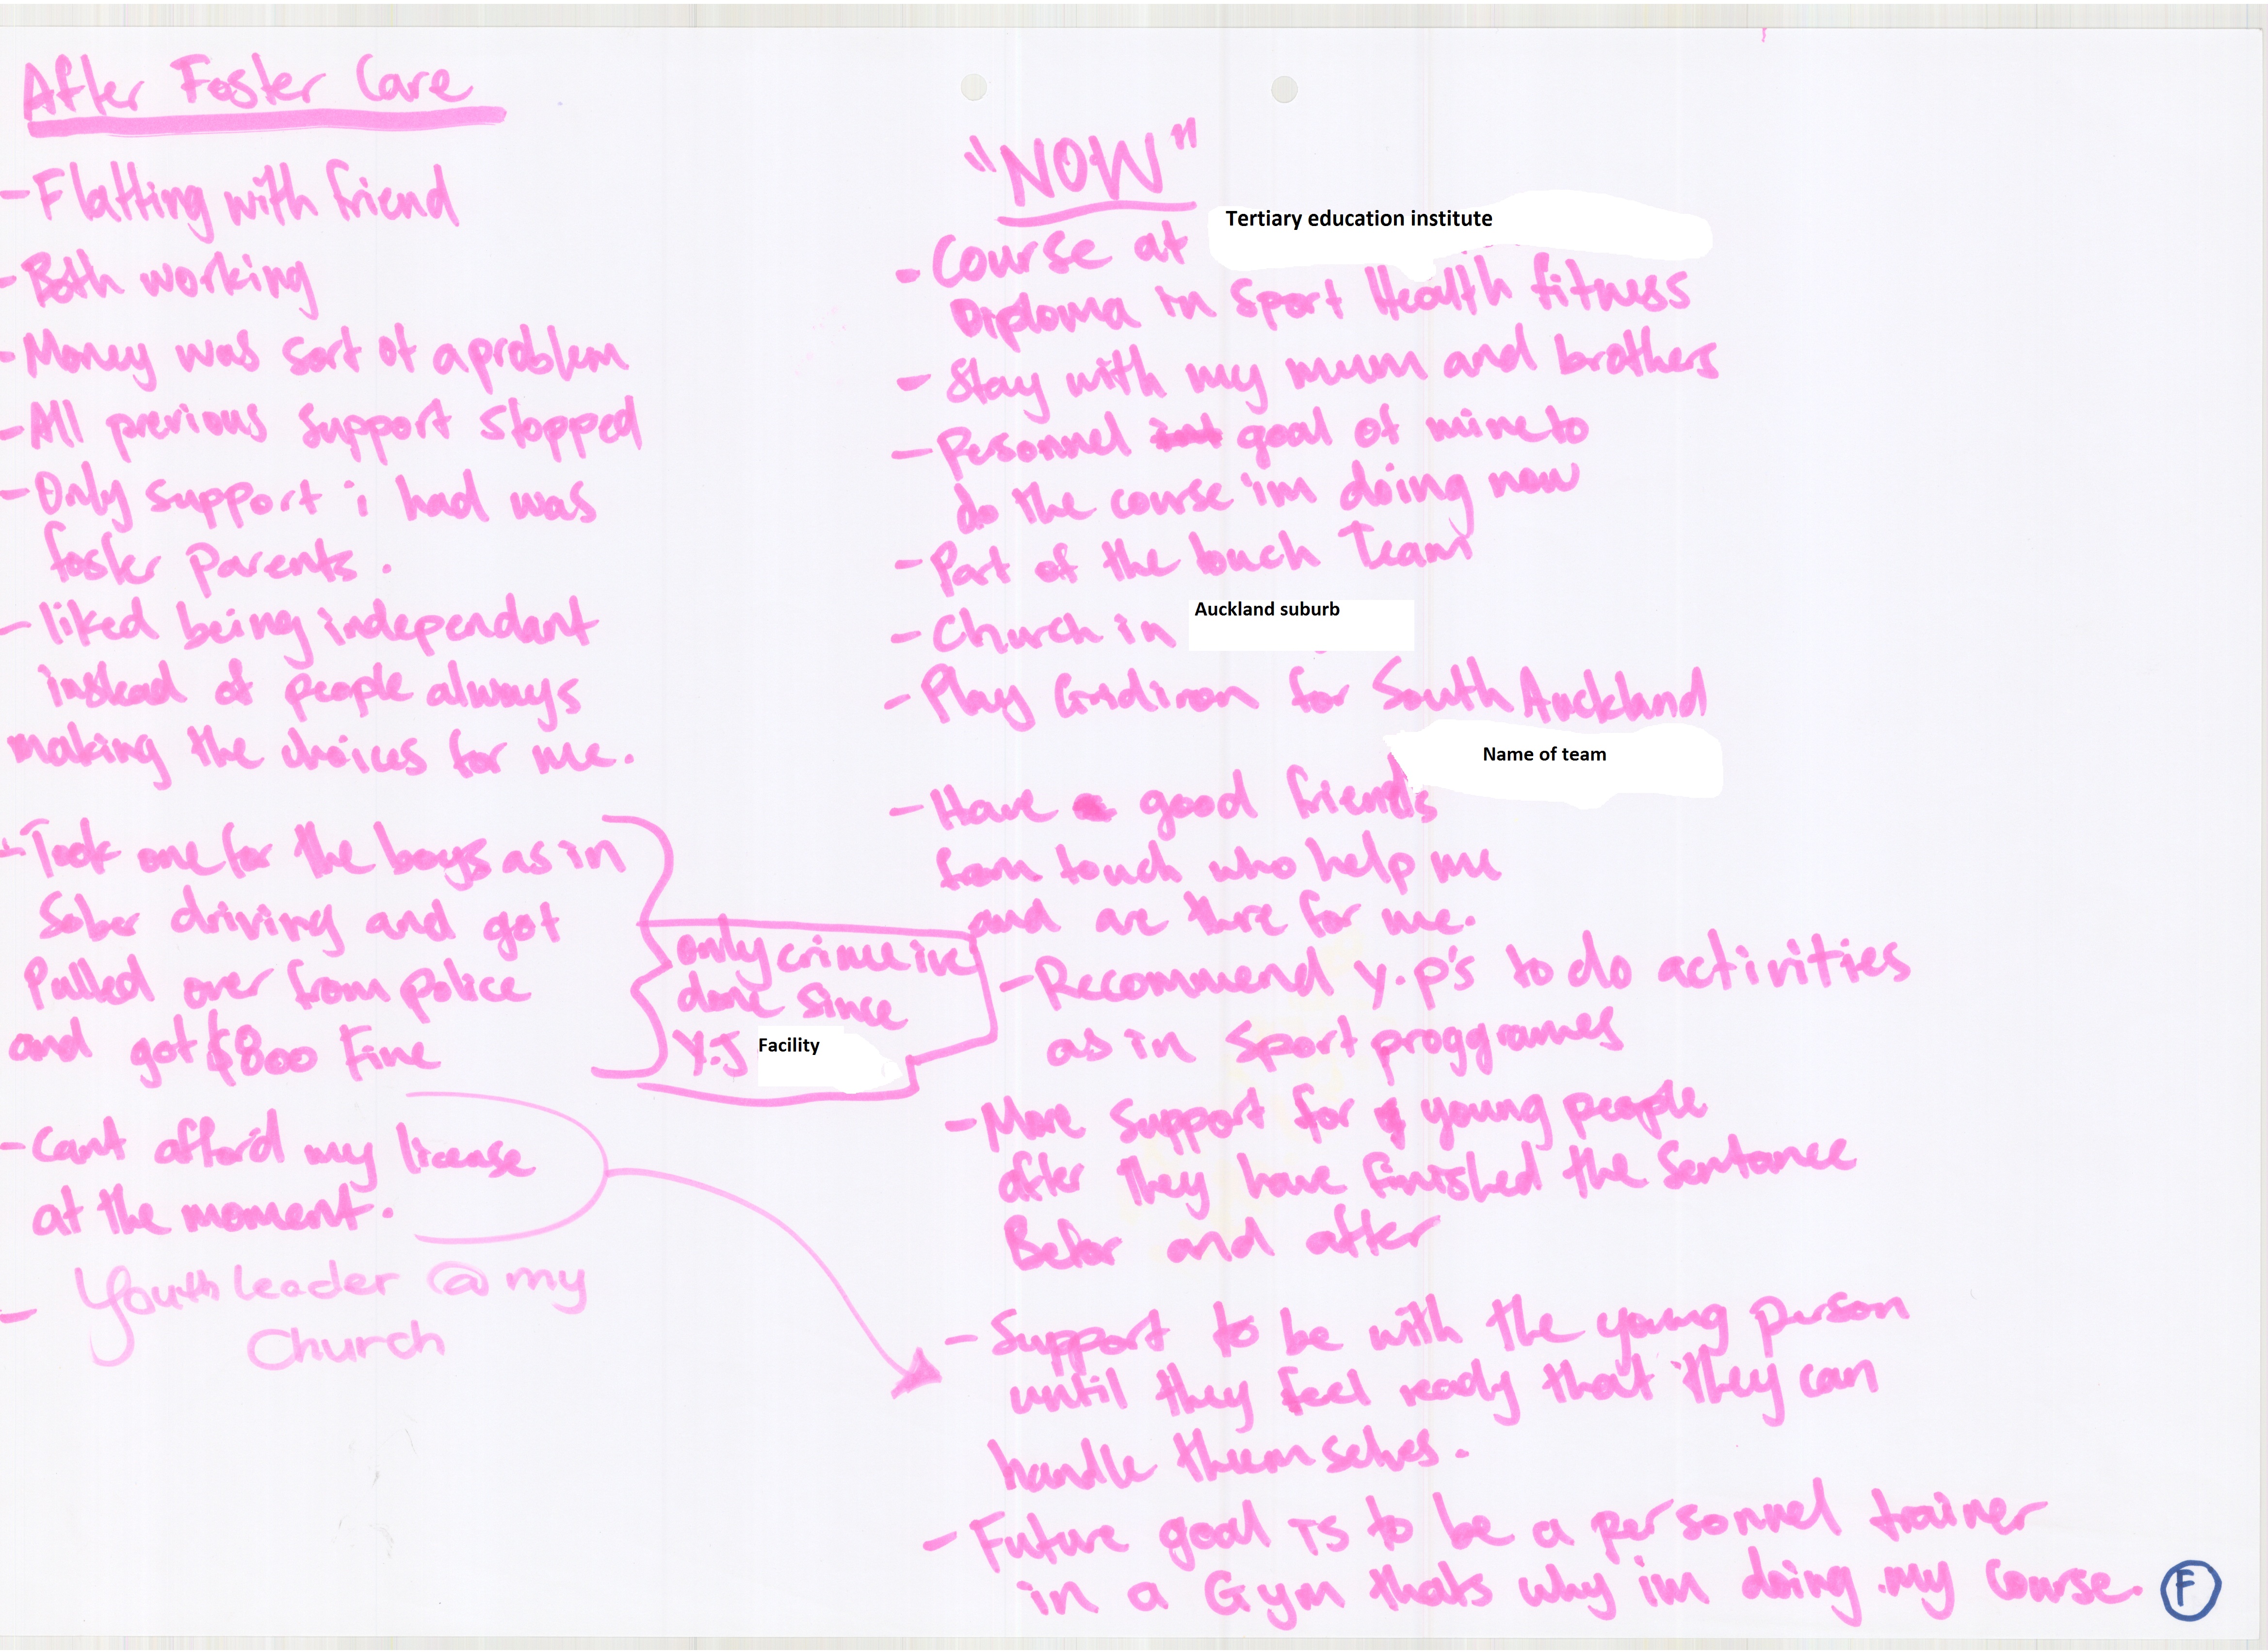 After Foster Care
- Flatting with friend
- Both working
- Money was sort of a problem
- All previous support stopped
- Only support i had was
foster parents.
- liked being independant
instead of people always
making the choices for me.
- Took one for the boys as in
Sober driving and got
Pulled over from police
and got $800 Fine
only crime ive
done since
Y.J Facility
- Cant afford my license
at the moment.
- Youth leader @ my
Church
"NOW"
- Course at Tertiary education institute
Diploma in Sport Health fitness
- Stay with my mum and brothers
- Personnel goal of mine to
do the course im doing now
- Part of the touch Team
- Church in Auckland suburb
- Play Gridiron for South Auckland
Name of team
- Have good friends
from touch who help me
and are there for me.
- Recommend y.p's to do activities
as in Sport proggrames
- More Support for young people
after they have finished the Sentance
Befor and after
- Support to be with the young person
until they feel ready that they can
handle themselves.
- Future goal is to be a personnel trainer
in a Gym thats why im doing my course.
F